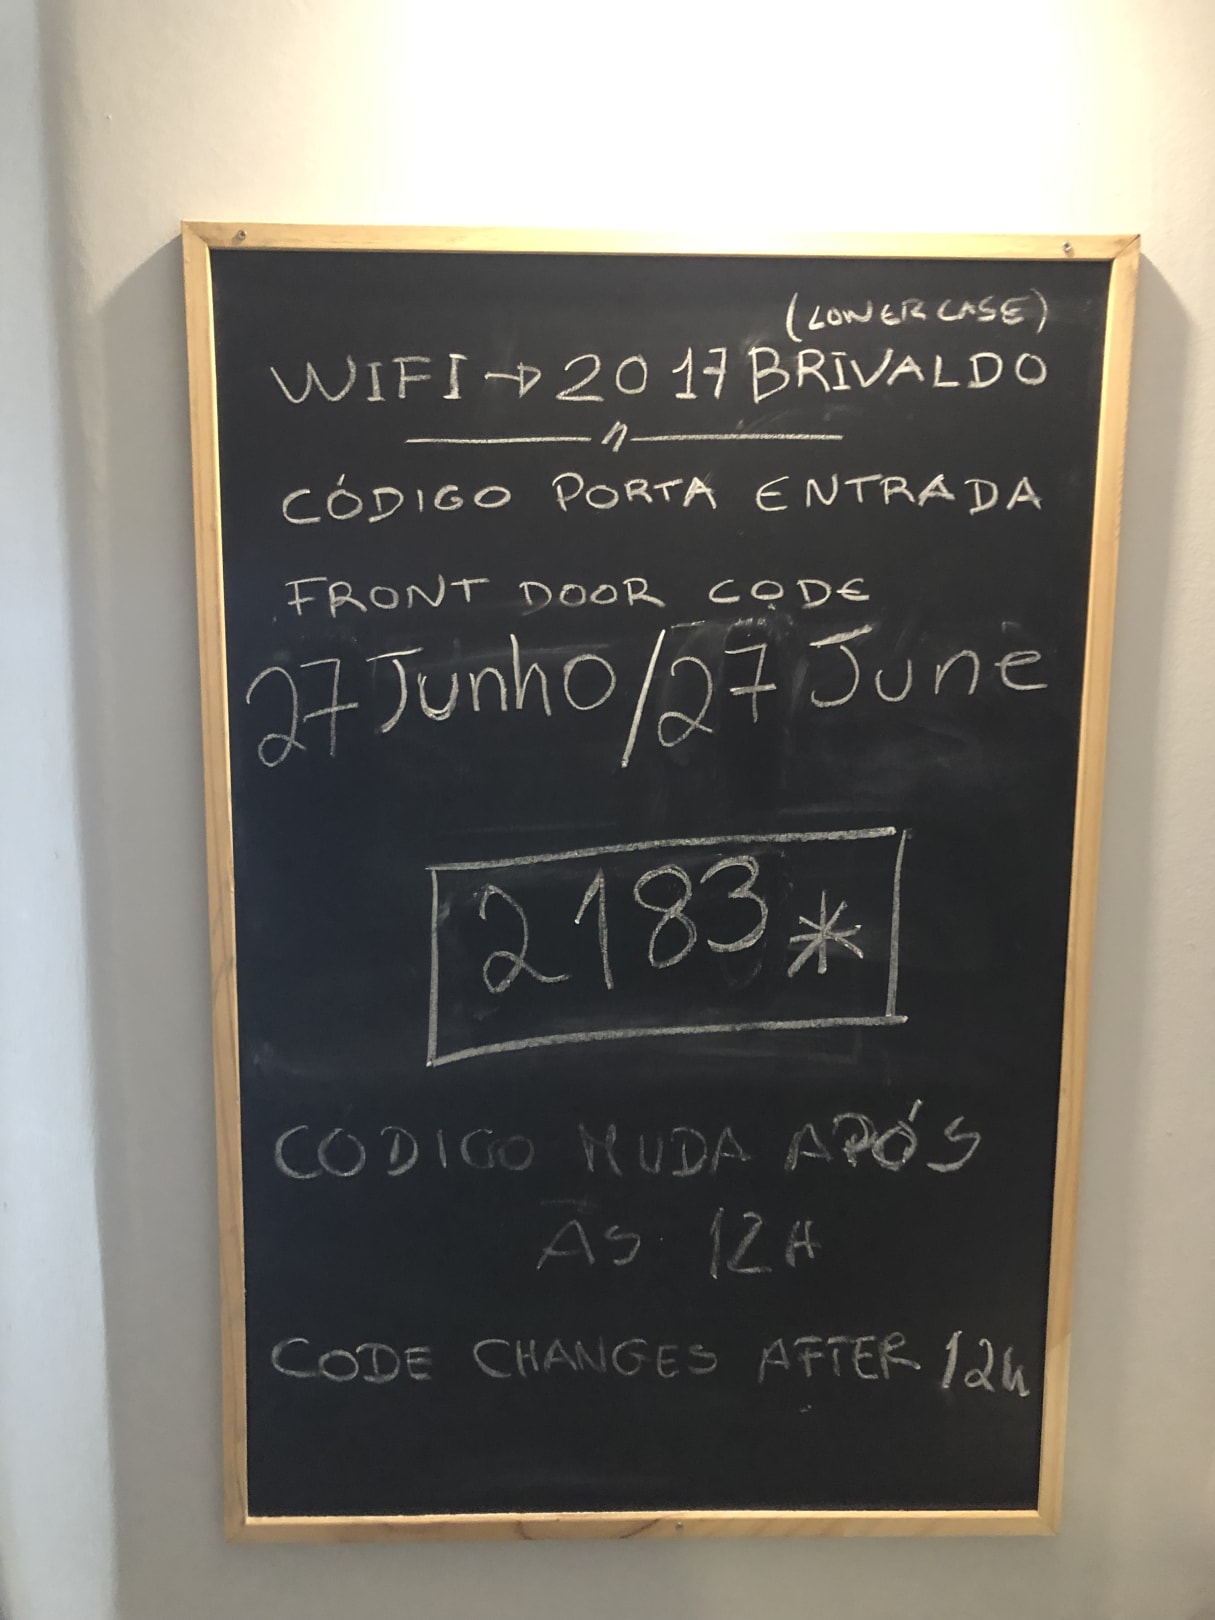 (LOWER CASE)
WIFI → 2017BRIVALDO
CÓDIGO PORTA ENTRADA
FRONT DOOR CODE
27 Junho/27 June
2183*
CÓDIGO MUDA APÓS
ÀS 12H
CODE CHANGES AFTER 12h